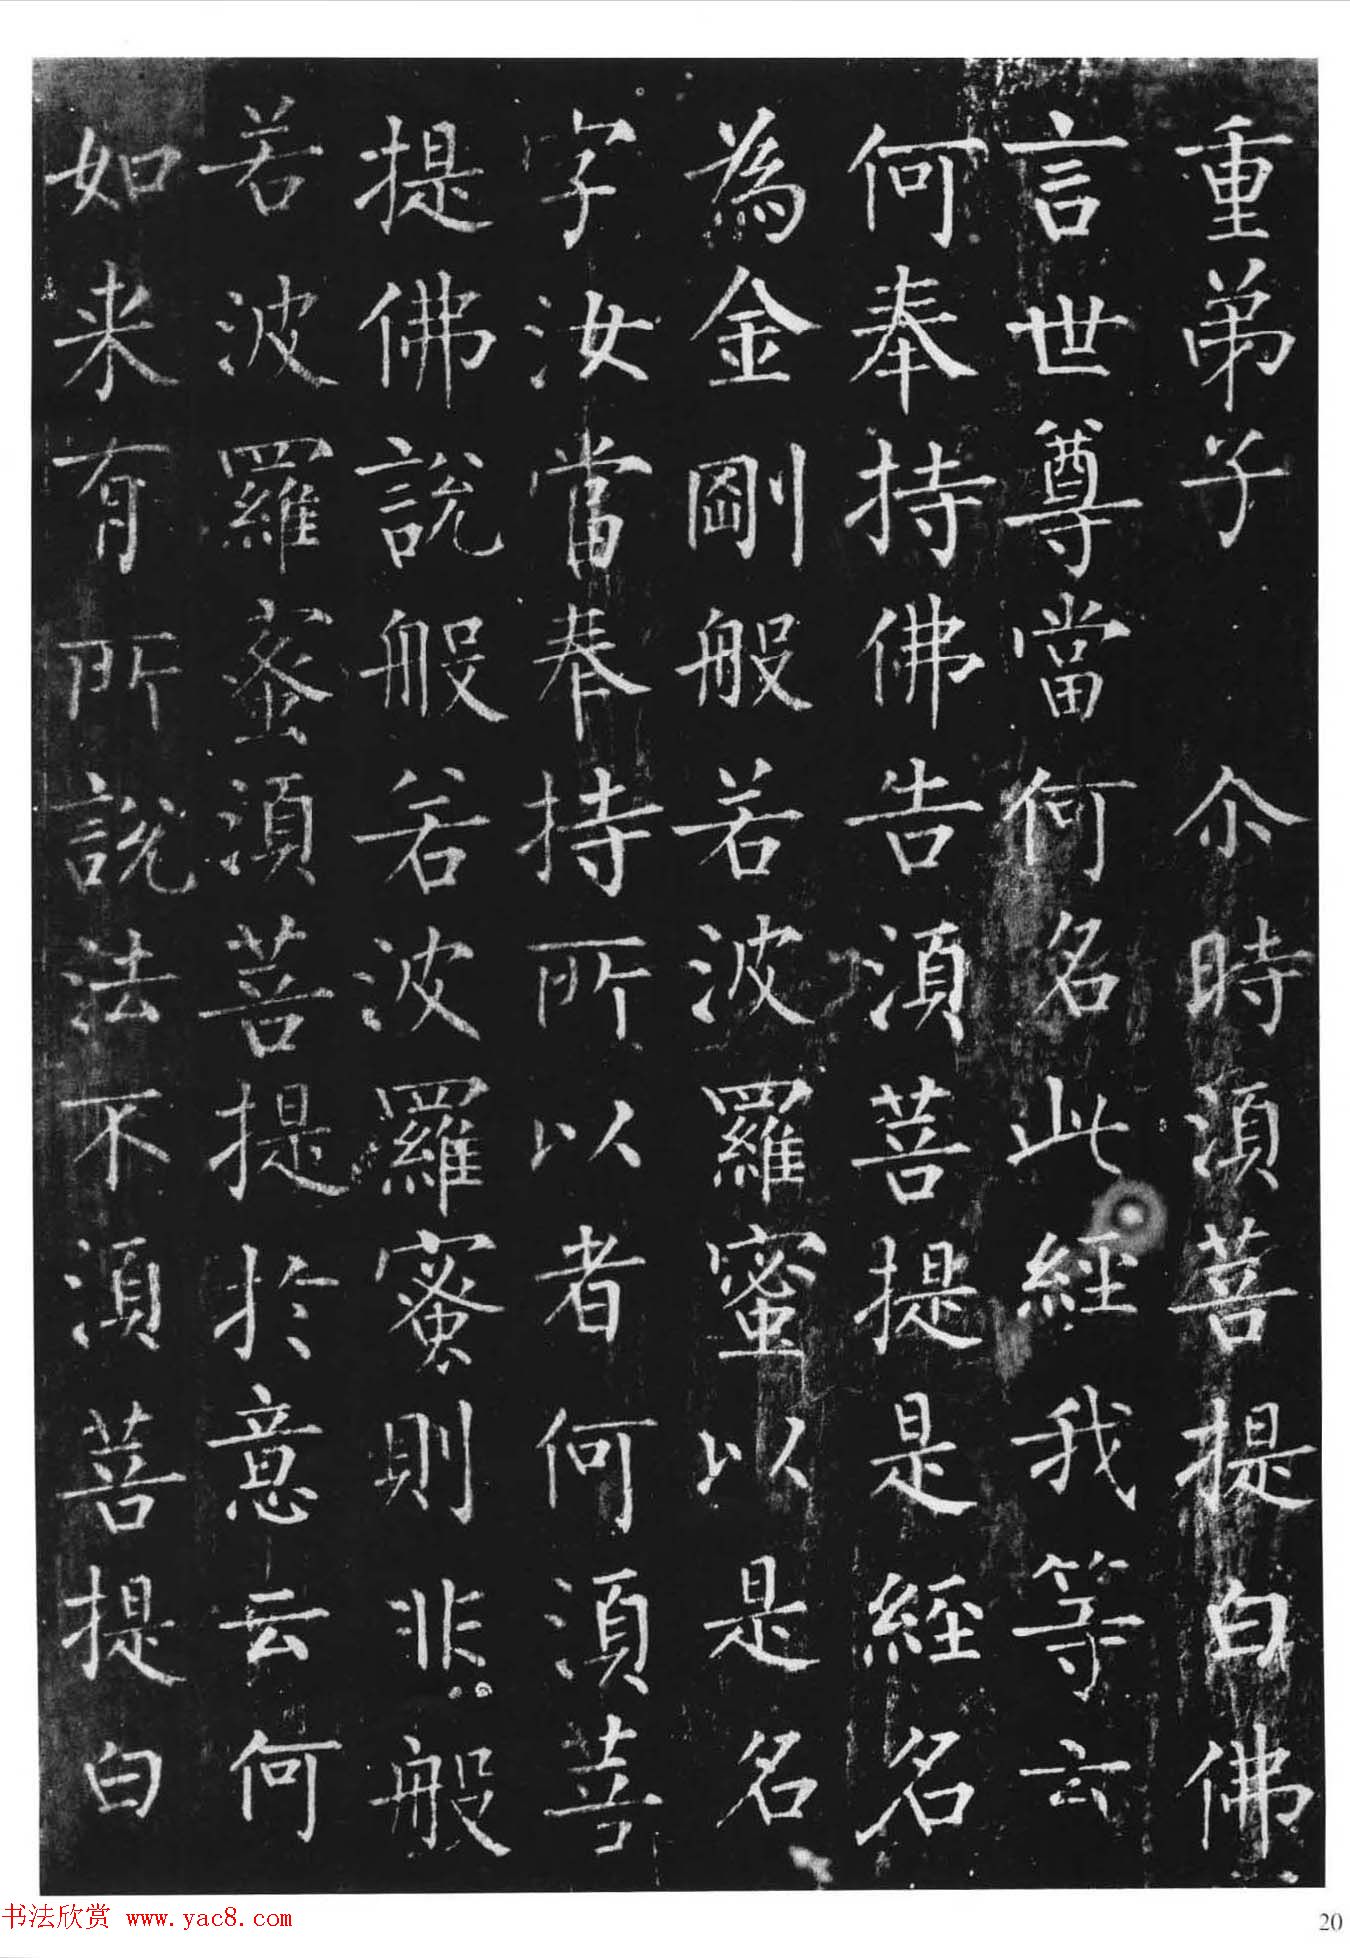 重弟子　尒時須菩提白佛
言世尊當何名此經我等云
何奉持佛告須菩提是經名
為金剛般若波羅蜜以是名
字汝當奉持所以者何須菩
提佛說般若波羅蜜則非般
若波羅蜜須菩提於意云何
如来有所說法不須菩提白
书法欣赏 www.yac8.com
20